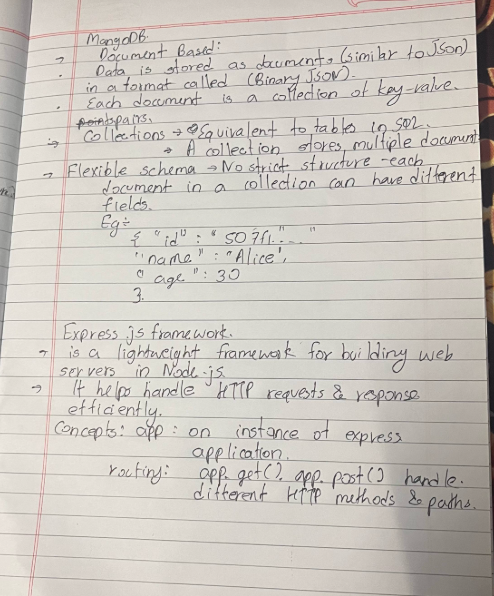 MongoDB.
→ Document Based:
. Data is stored as documents (similar to Json)
in a format called (Binary Json).
. Each document is a collection of key-value.
points pairs.
→ Collections → Equivalent to tables in SQL.
→ A collection stores multiple document
→ Flexible schema → No strict structure - each
document in a collection can have different
fields.
Eg:-
{ "id" : "507f1....."
"name" : "Alice",
" age " : 30
}.
Express js framework.
→ is a lightweight framework for building web
servers in Node.js
→ It helps handle HTTP requests & response
efficiently.
Concepts: app : on instance of express
application.
routing: app.get(), app.post() handle.
different HTTP methods & paths.